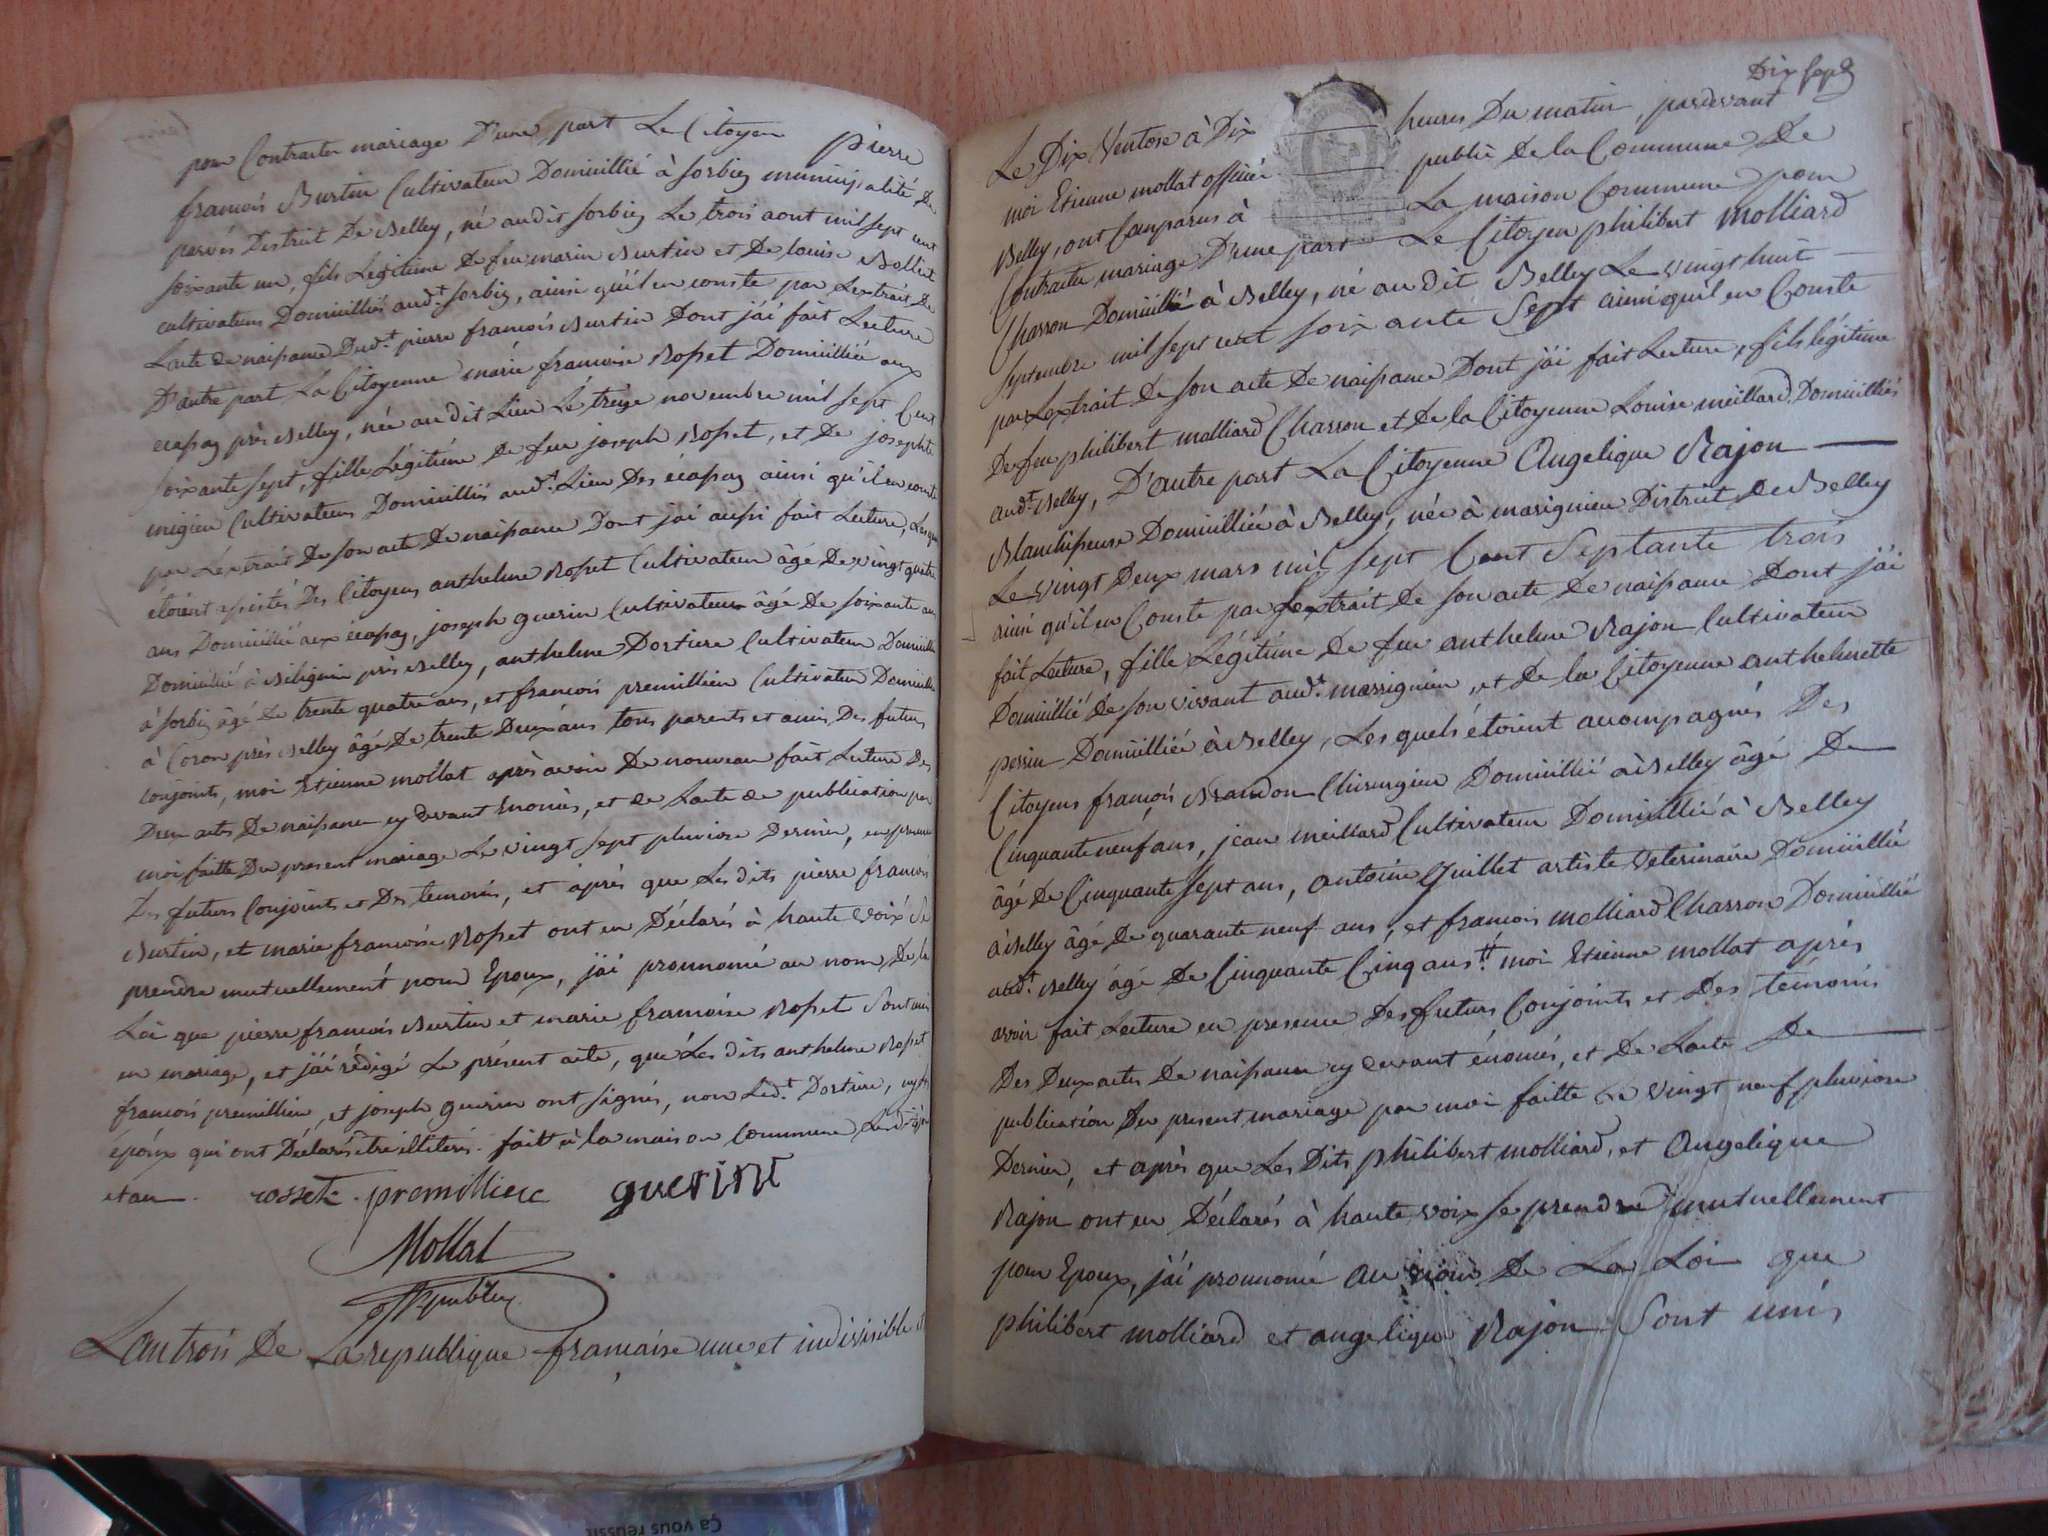 pour Contracter mariage D'une part Le Citoyen pierre
francois Burtin Cultivateur Domicillié à sorbiez municipalité De
parvés District De Belley, né audit sorbiez Le trois aout mil sept cent
soixante un, fils Legitime De feu marin Burtin et De louise Bolliet
cultivateurs Domicilliés aud.t sorbiez, ainsi qu'il en conste par Lextrait De
Lacte De naissance Dud.t pierre francois Burtin Dont j'ai fait Lecture
D'autre part La Citoyenne marie francoise Rosset Domicilliée aux
ecassaz près Belley, née audit Lieu Le treize novembre mil sept Cent
soixante sept, fille Légitime De feu joseph Rosset, et De josephte
migieu Cultivateurs Domicilliés aud.t Lieu Des écassaz ainsi qu'il en conste
par Léxtrait De son acte De naissance Dont jai aussi fait Lecture, Lesquels
étoient assistés Des Citoyens anthelme Rosset Cultivateur âgé De vingt quatre
ans Domicillié aux écassaz, joseph guerin Cultivateur âgé De soixante ans
Domicillié à Biligniu près Belley, anthelme Dortiere Cultivateur Domicillié
à sorbiez âgé De trente quatre ans, et francois premillieu Cultivateur Domicillié
à Coron près Belley âgé De trente Deux ans tous parents et amis Des futurs
conjoints, moi Etienne mollat après avoir De nouveau fait Lecture Des
Deux actes De naissance cy devant énoncés, et de Lacte de publication par
moi faitte Du present mariage Le vingt sept pluviose Dernier, en presence
Des futurs Conjoints et Des temoins, et après que Les dits pierre francois
Burtin, et marie francoise Rosset ont eu Déclarés à haute voix Se
prendre mutuellement pour Epoux, j'ai prononcé au nom De la
Loi que pierre francois Burtin et marie francoise Rosset Sont unis
en mariage, et j'ai rédigé Le présent acte, que Les dits anthelme Rosset
francois premillieu, et joseph guerin ont signés, non Led.t Dortiere,
époux qui ont Déclarés être illiterés. fait à la maison Commune Les
et an. rosset premillieu guerin
Mollat
off. public
L'an trois De La republique francaise une et indivisible et
Dix sept
Le Dix Ventose à Dix heures Du matin, pardevant
moi Etienne mollat officier public De la Commune De
Belley, ont Comparus à La maison Commune pour
Contracter mariage D'une part Le Citoyen philibert Molliard
Charron Domicillié à Belley, né audit Belley Le vingt huit
septembre mil sept cent soixante Sept ainsi qu'il en Conste
par Lextrait De son acte De naissance Dont j'ai fait Lecture, fils légitime
De feu philibert molliard Charron et De la Citoyenne Louise meillard Domicilliés
aud.t Belley, D'autre part La Citoyenne Angelique Rajon
Blanchisseuse Domicilliée à Belley, née à marignieu District De Belley
Le vingt Deux mars mil sept Cent Septante trois
ainsi qu'il en Conste par Lextrait De son acte De naissance Dont j'ai
fait Lecture, fille Légitime De feu anthelme Rajon Cultivateur
Domicillié De son vivant aud.t marignieu, et De la Citoyenne anthelmette
perrin Domicilliée à Belley, Lesquels étoient accompagnés Des
Citoyens françois Brandon Chirurgien Domicillié à Belley âgé De
Cinquante neuf ans, jean meillard Cultivateur Domicillié à Belley
âgé De Cinquante sept ans, antoine Guillet artiste Veterinaire Domicillié
à Belley âgé De quarante neuf ans, et francois molliard Charron Domicillié
aud.t Belley âgé De Cinquante Cinq ans moi Etienne mollat après
avoir fait Lecture en presence Des futurs Conjoints et Des témoins
Des Deux actes De naissance cy devant énoncés, et De Lacte De
publication Du present mariage par moi faitte Le vingt neuf pluviose
Dernier, et après que Les Dits philibert molliard, et Angelique
Rajon ont eu Déclarés à haute voix se prendre mutuellement
pour Epoux, j'ai prononcé au nom De La Loi que
philibert molliard et angelique Rajon Sont unis
Ça vous réussit